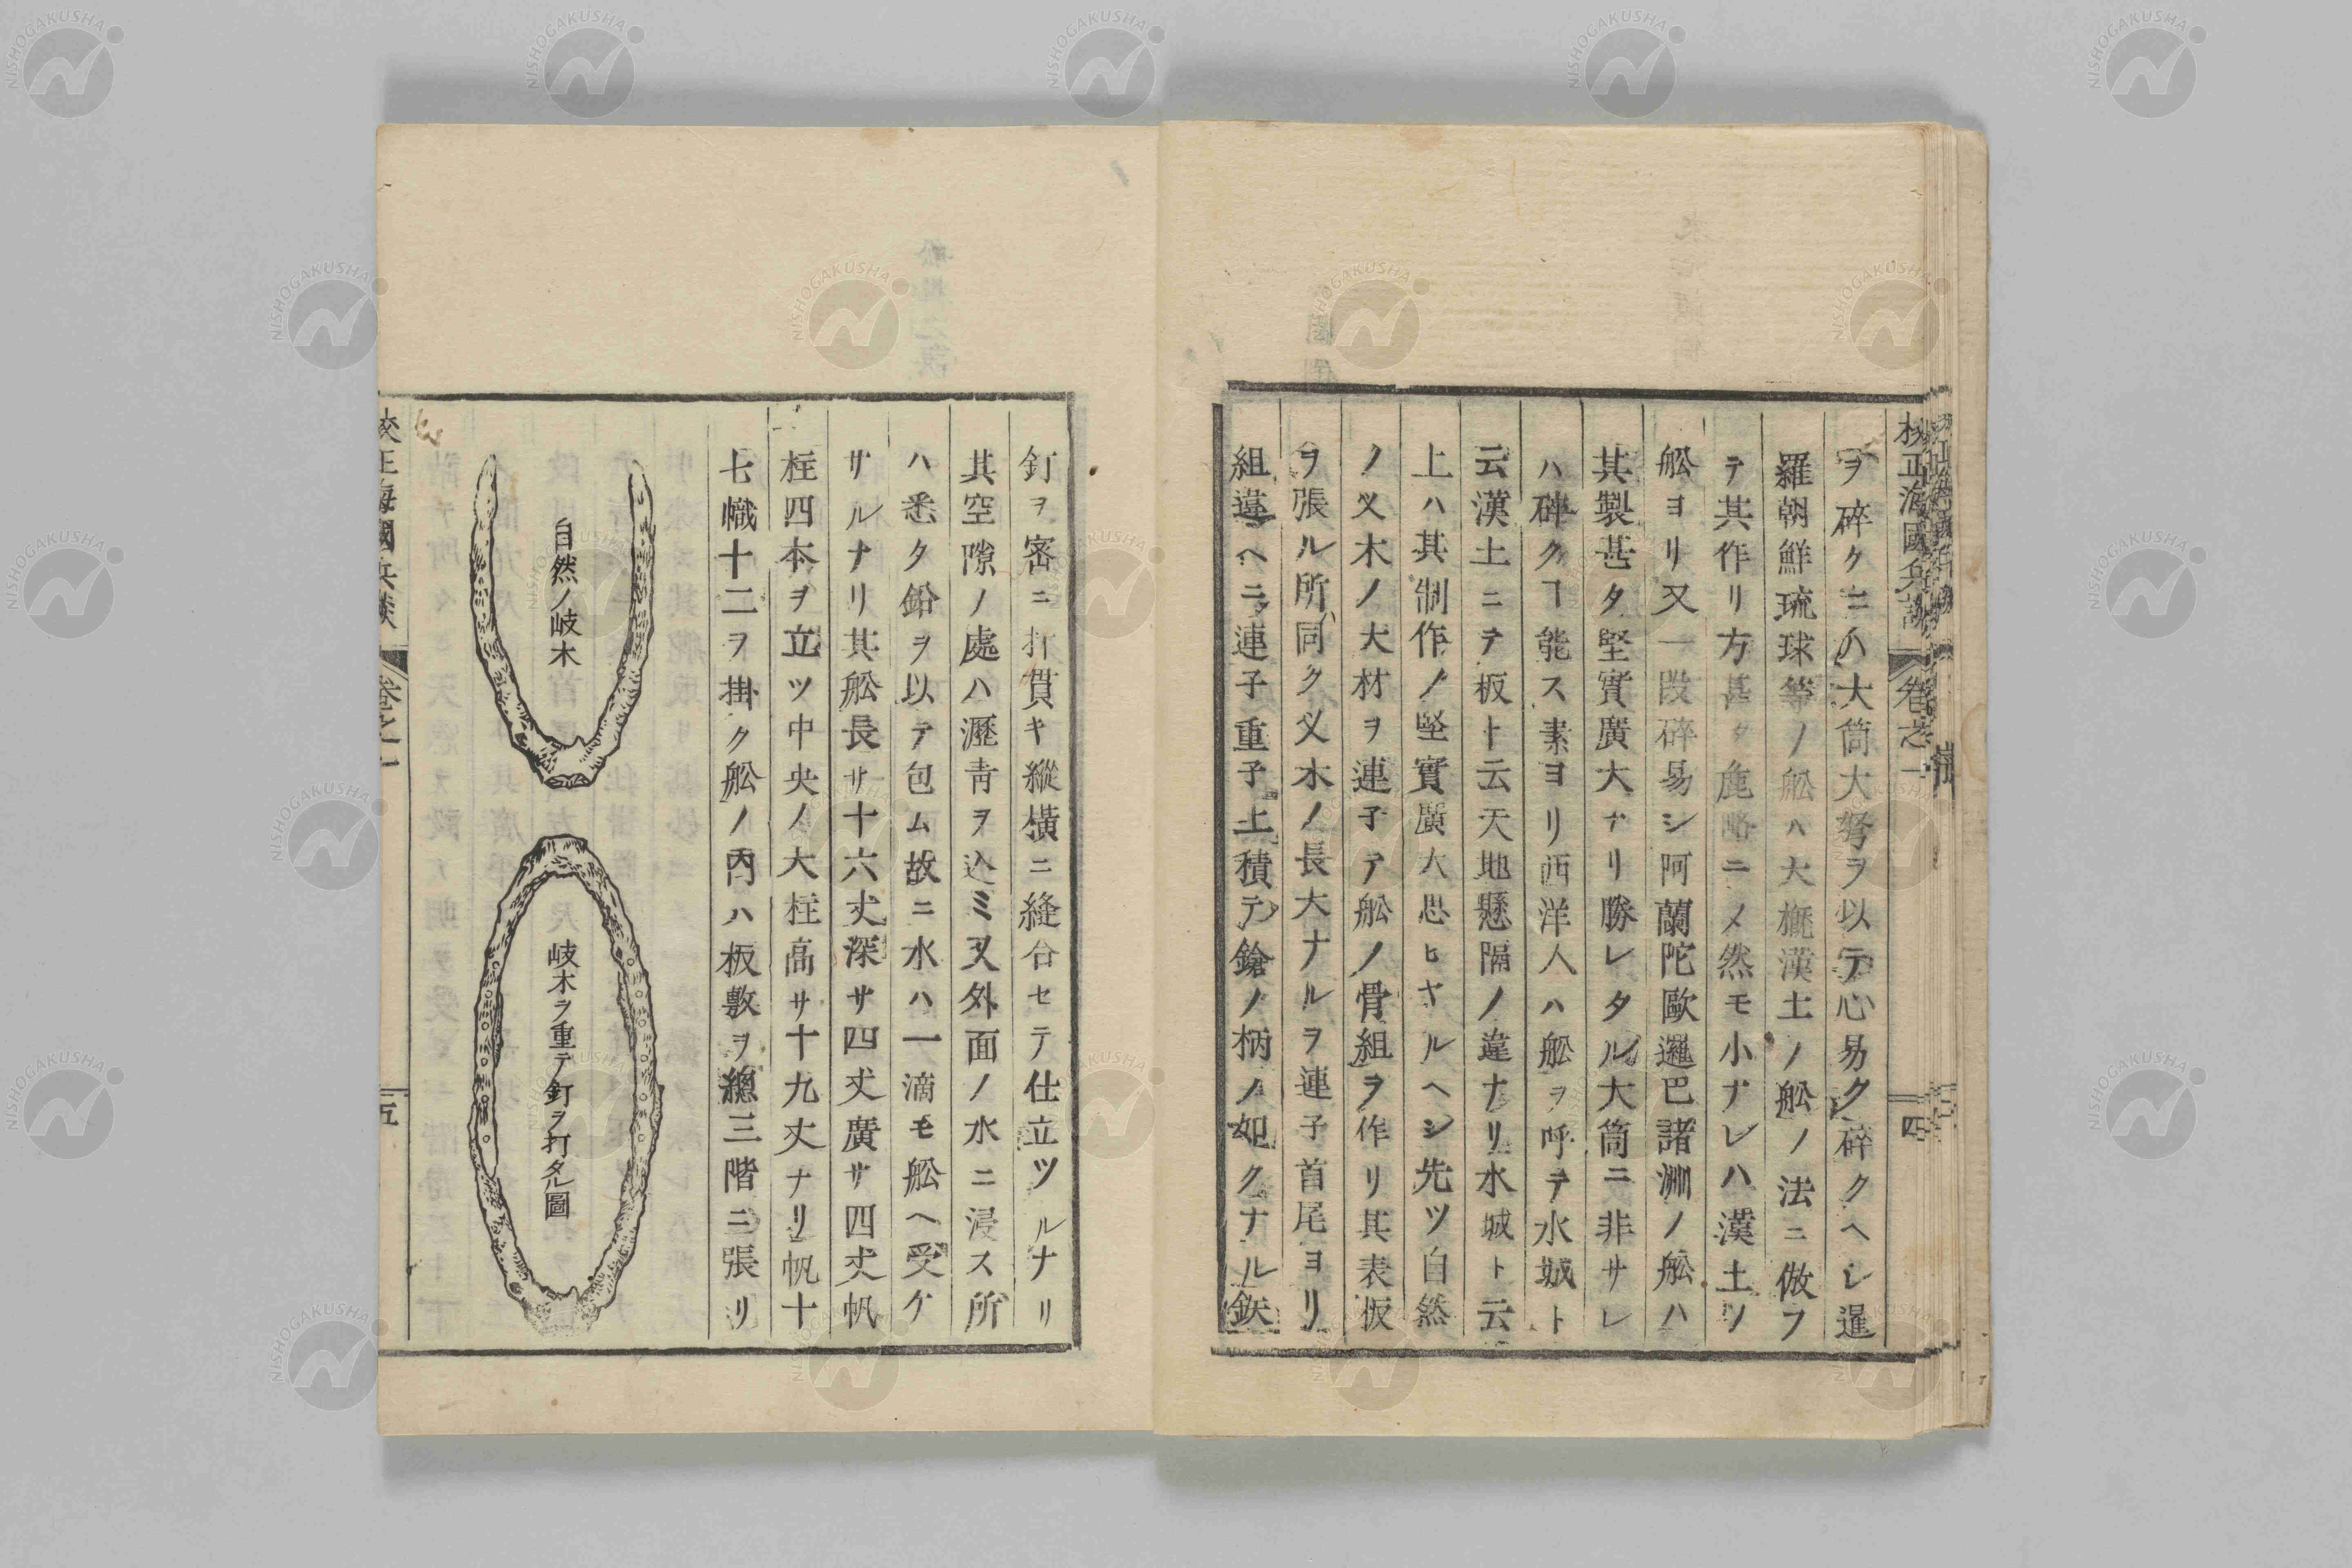 校正海國兵談 卷之一 四
ヲ碎クニハ大筒大弩ヲ以テ心易ク碎クヘレ暹
羅朝鮮琉球等ノ舩ハ大概漢土ノ舩ノ法ニ倣フ
テ其作リ方甚タ麁略ニメ然モ小ナレハ漢土ノ
舩ヨリ又一段碎易シ阿蘭陀歐邏巴諸洲ノ舩ハ
其製甚タ堅實廣大ナリ勝レタル大筒ニ非サレ
ハ碎クヿ能ス素ヨリ西洋人ハ舩ヲ呼テ水城ト
云漢土ニテ板ト云天地懸隔ノ違ナリ水城ト云
上ハ其制作ノ堅實廣大思ヒヤルヘシ先ツ自然
ノ乂木ノ大材ヲ連子テ舩ノ骨組ヲ作リ其表板
ヲ張ル所ハ同ク乂木ノ長大ナルヲ連子首尾ヨリ
組違ヘニ連子重子上積テ鎗ノ柄ノ如クナル鉄
釘ヲ密ニ打貫キ縱横ニ縫合セテ仕立ツルナリ
其空隙ノ處ハ瀝青ヲ込ミ又外面ノ水ニ浸ス所
ハ悉ク鉛ヲ以テ包ム故ニ水ハ一滴モ舩ヘ受ケ
サルナリ其舩長サ十六丈深サ四丈廣サ四丈帆
柱四本ヲ立ツ中央ノ大柱高サ十九丈ナリ帆十
七幟十二ヲ掛ク舩ノ内ハ板敷ヲ總三階ニ張リ
自然ノ岐木
岐木ヲ重テ釘ヲ打タル圖
校正海國兵談 卷之一 五